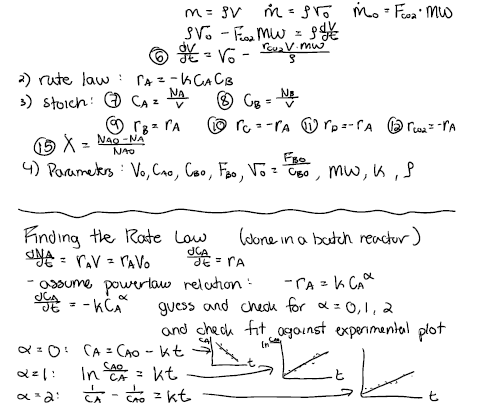 m = ρV   ṁ = ρv₀   ṁ₀ = F_CO2 · MW
ρv₀ - F_CO2 MW = ρ dV/dt
⑥ dV/dt = v₀ - r_CO2 V · MW / ρ
2) rate law : r_A = -kC_A C_B
3) stoich: ⑦ C_A = N_A/V   ⑧ C_B = N_B/V
⑨ r_B = r_A   ⑩ r_C = -r_A   ⑪ r_D = -r_A   ⑫ r_CO2 = -r_A
⑮ X = (N_A0 - N_A)/N_A0
4) Parameters : V₀, C_A0, C_B0, F_B0, v₀ = F_B0/C_B0, MW, k, ρ
Finding the Rate Law   (done in a batch reactor)
dN_A/dt = r_A V = r_A V₀   dC_A/dt = r_A
- assume powerlaw relation:   -r_A = k C_A^α
dC_A/dt = -kC_A^α   guess and check for α = 0, 1, 2
and check fit against experimental plot
α = 0:   C_A = C_A0 - kt → C_A t
α = 1:   ln C_A0/C_A = kt → ln t
α = 2:   1/C_A - 1/C_A0 = kt → t